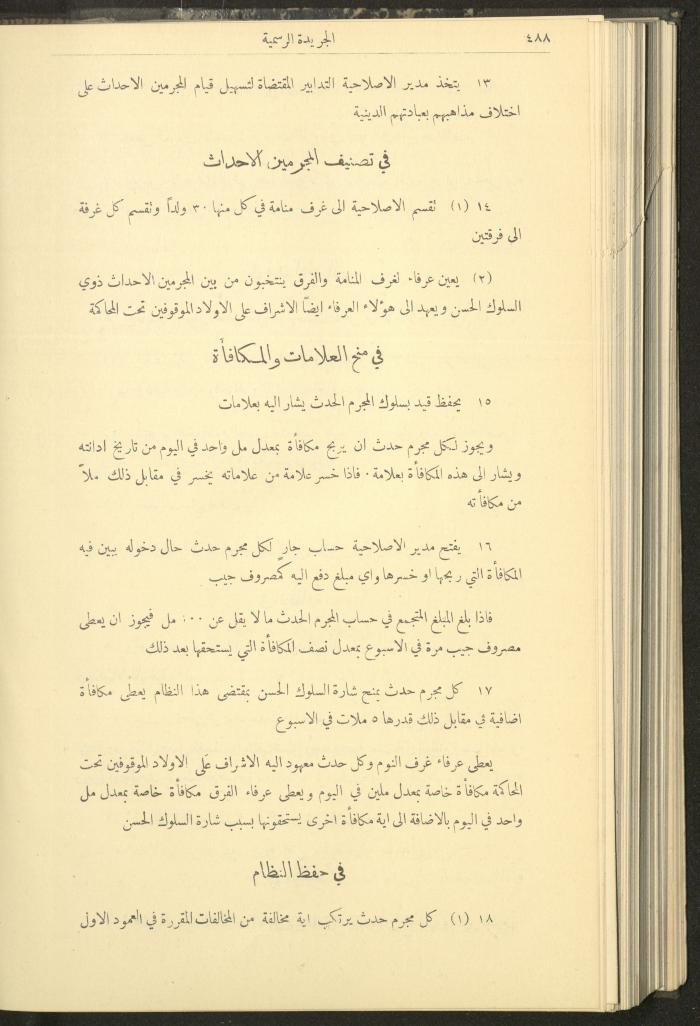 ٤٨٨ الجريدة الرسمية
١٣ يتخذ مدير الاصلاحية التدابير المقتضاة لتسهيل قيام المجرمين الاحداث على
اختلاف مذاهبهم بعبادتهم الدينية
في تصنيف المجرمين الاحداث
١٤ (١) تقسم الاصلاحية الى غرف منامة في كل منها ٣٠ ولداً وتقسم كل غرفة
الى فرقتين
(٢) يعين عرفاء لغرف المنامة والفرق ينتخبون من بين المجرمين الاحداث ذوي
السلوك الحسن ويعهد الى هؤلاء العرفاء ايضاً الاشراف على الاولاد الموقوفين تحت المحاكمة
في منح العلامات والمكافأة
١٥ يحفظ قيد بسلوك المجرم الحدث يشار اليه بعلامات
ويجوز لكل مجرم حدث ان يربح مكافأة بمعدل مل واحد في اليوم من تاريخ ادانته
ويشار الى هذه المكافأة بعلامة. فاذا خسر علامة من علاماته يخسر في مقابل ذلك ملاً
من مكافأته
١٦ يفتح مدير الاصلاحية حساب جارٍ لكل مجرم حدث حال دخوله يبين فيه
المكافأة التي ربحها او خسرها واي مبلغ دفع اليه كمصروف جيب
فاذا بلغ المبلغ المتجمع في حساب المجرم الحدث ما لا يقل عن مل فيجوز ان يعطى
مصروف جيب مرة في الاسبوع بمعدل نصف المكافأة التي يستحقها بعد ذلك
١٧ كل مجرم حدث يمنح شارة السلوك الحسن بمقتضى هذا النظام يعطى مكافأة
اضافية في مقابل ذلك قدرها ٥ ملات في الاسبوع
يعطى عرفاء غرف النوم وكل حدث معهود اليه الاشراف على الاولاد الموقوفين تحت
المحاكمة مكافأة خاصة بمعدل ملين في اليوم ويعطى عرفاء الفرق مكافأة خاصة بمعدل مل
واحد في اليوم بالاضافة الى اية مكافأة اخرى يستحقونها بسبب شارة السلوك الحسن
في حفظ النظام
١٨ (١) كل مجرم حدث يرتكب اية مخالفة من المخالفات المقررة في العمود الاول